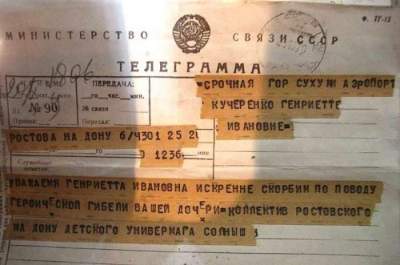 Ф. ТГ-15
МИНИСТЕРСТВО СВЯЗИ СССР
ТЕЛЕГРАММА
ПЕРЕДАЧА:
го час. мин.
№ связи
№ 90
СРОЧНАЯ ГОР СУХУМ АЭРОПОРТ
КУЧЕРЕНКО ГЕНРИЕТТЕ
ИВАНОВНЕ=
РОСТОВА НА ДОНУ 6/4301 25 2
1236=
Служебные
ГЕНРИЕТТА ИВАНОВНА ИСКРЕННЕ СКОРБИМ ПО ПОВОДУ
ГЕРОИЧЕСКОЙ ГИБЕЛИ ВАШЕЙ ДОЧЕРИ=КОЛЛЕКТИВ РОСТОВСКОГО
НА ДОНУ ДЕТСКОГО УНИВЕРМАГА СОЛНЫШ